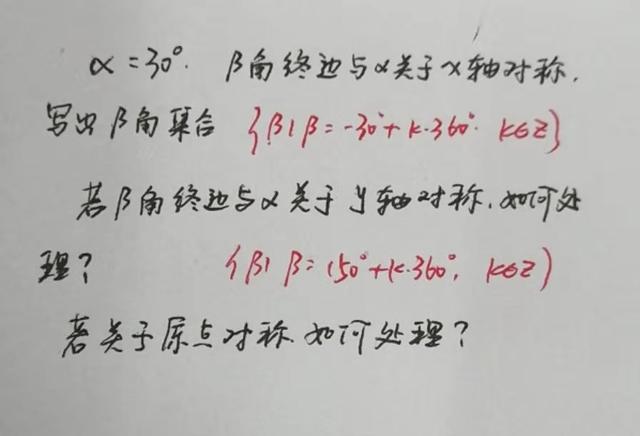 α=30°. β角终边与α关于x轴对称,
写出β角集合 {β|β=-30°+k·360°. k∈Z}
若β角终边与α关于y轴对称.如何处
理? {β|β=150°+k·360°, k∈Z}
若关于原点对称.如何处理?